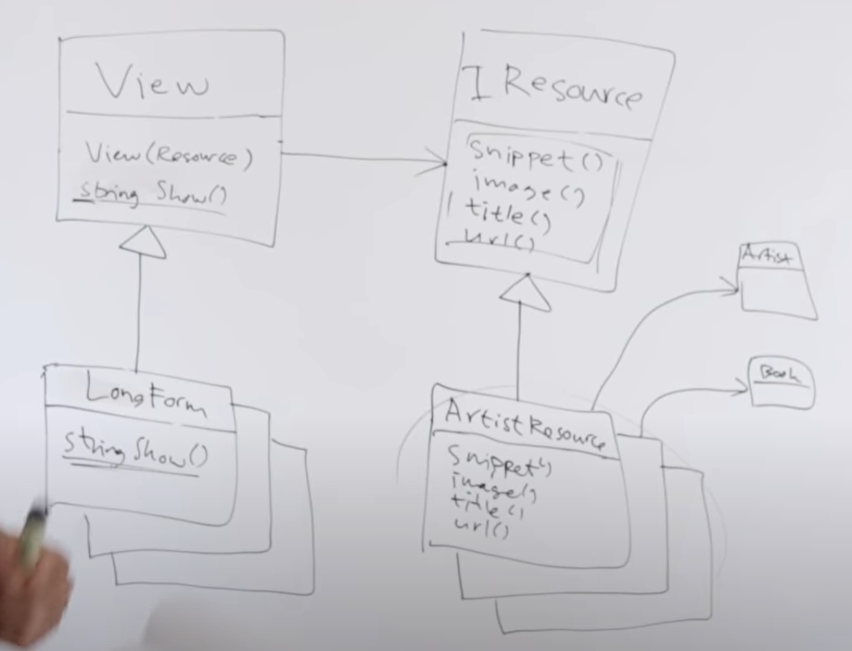 View
View(Resource)
string Show()
I Resource
Snippet()
image()
title()
url()
Artist
Book
LongForm
string Show()
ArtistResource
Snippet()
image()
title()
url()